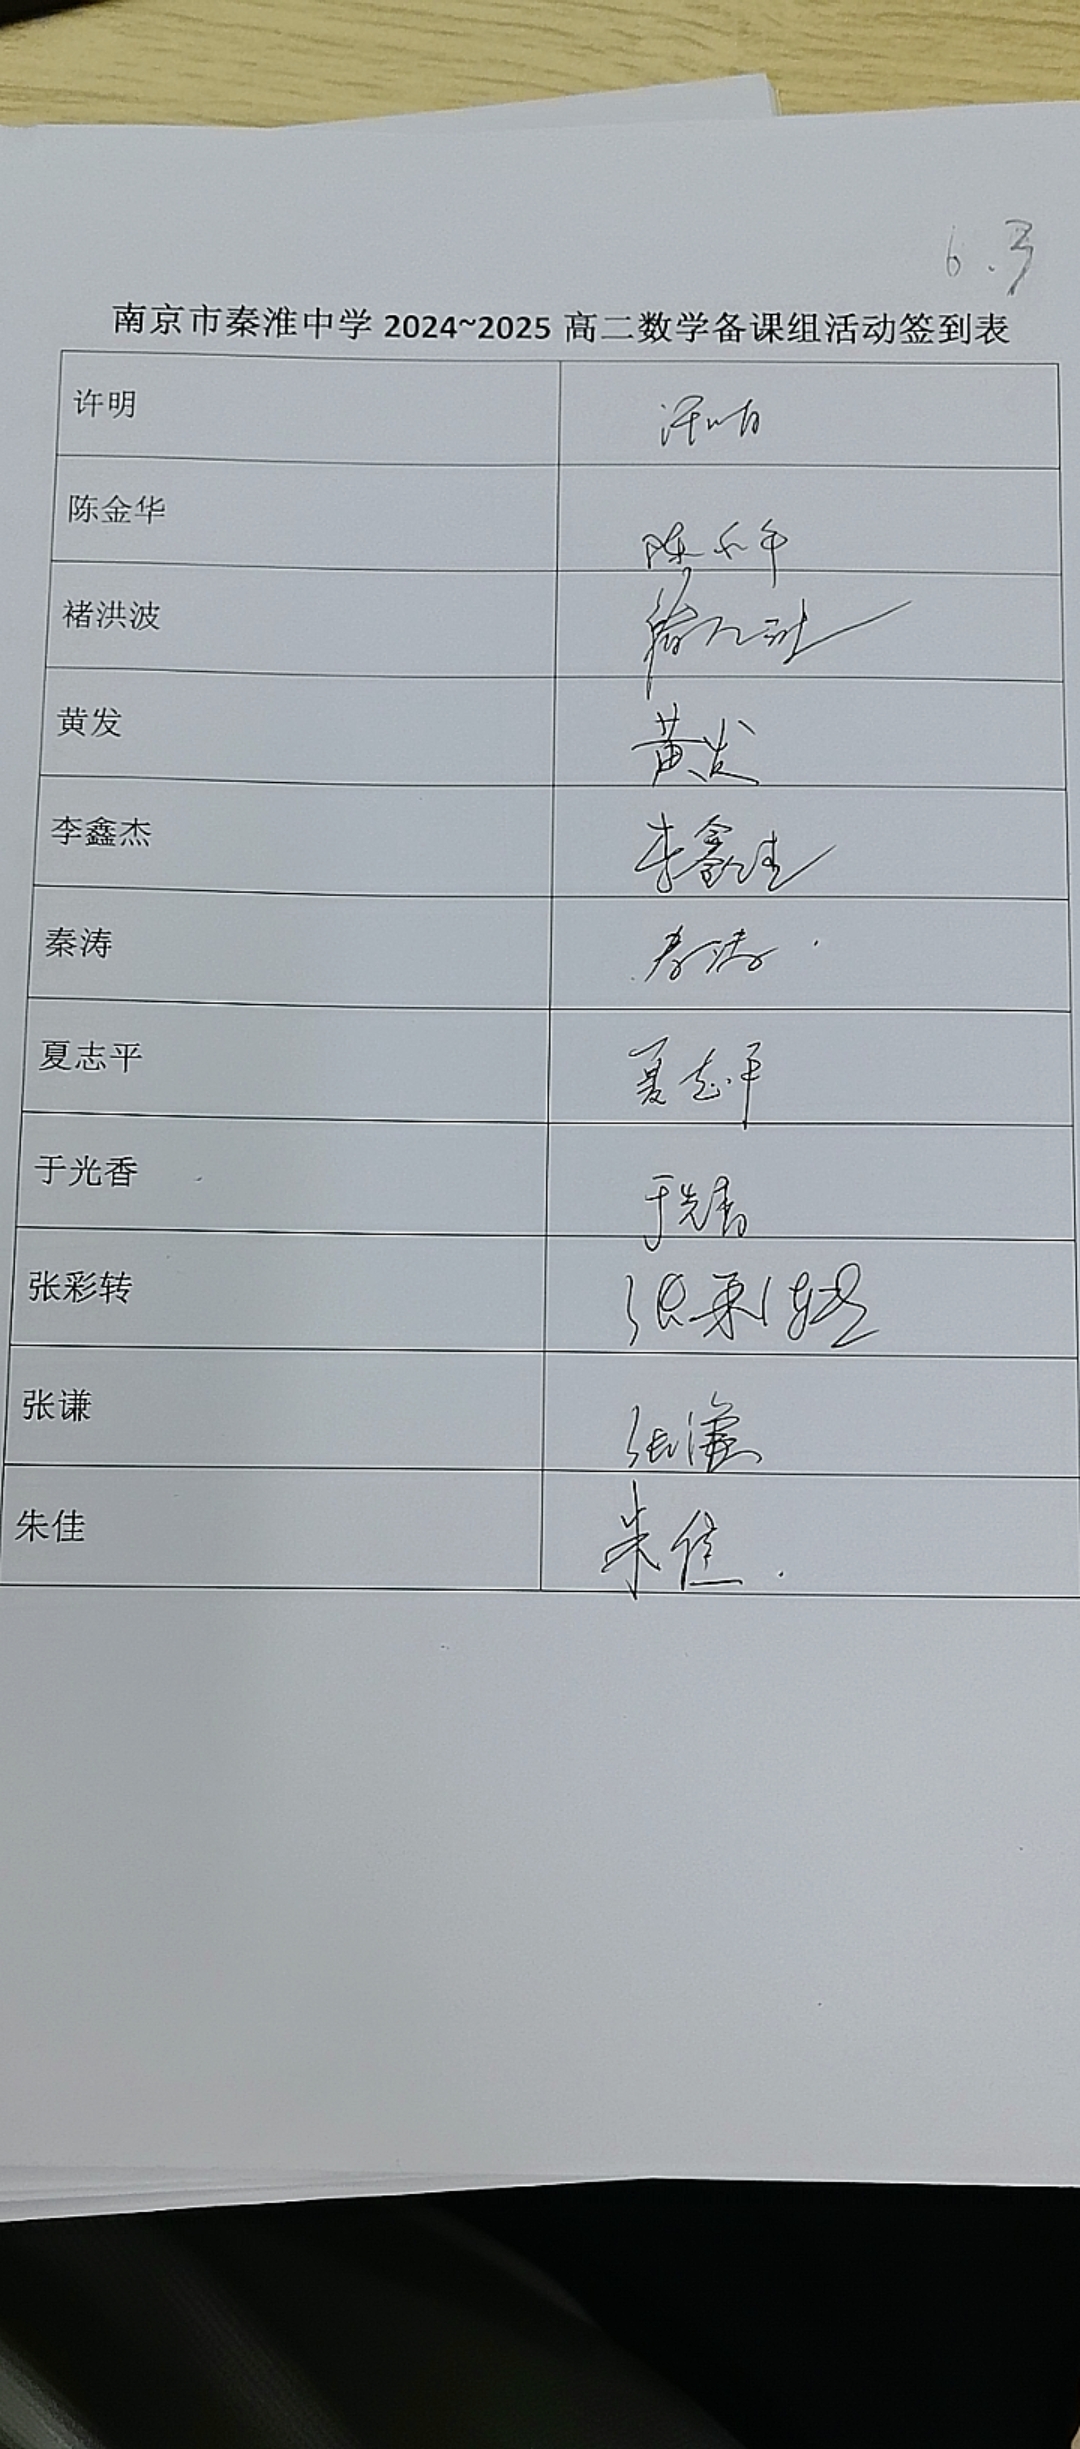 6.3
南京市秦淮中学 2024~2025 高二数学备课组活动签到表
许明 许明
陈金华 陈金华
褚洪波
黄发 黄发
李鑫杰 李鑫杰
秦涛 秦涛
夏志平 夏志平
于光香 于光香
张彩转 张彩转
张谦 张谦
朱佳 朱佳